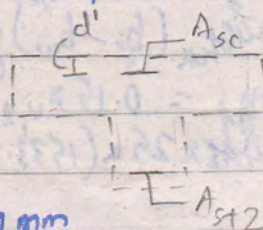 d' Asc
Ast2
mm